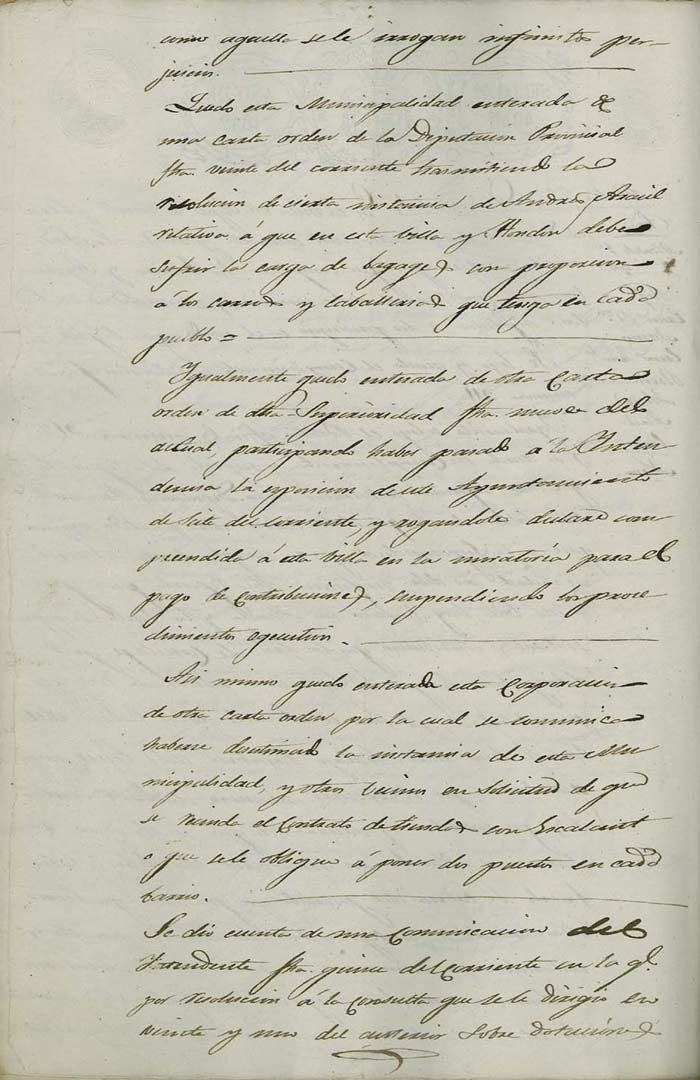 como aquella se le irrogan infinitos per-
juicios.
Quedó esta Municipalidad enterada de
una carta orden de la Diputacion Provincial
fha. veinte del corriente trasmitiendo la
resolucion de cierta instancia de Andres
relativa á que en esta Villa y Hondon debe
sufrir la carga de bagages con proporcion
á los carros y caballerias que tenga en cada
pueblo =
Igualmente quedó enterada de otra Carta
orden de dha. Superioridad fha. nueve del
actual, participando haber pasado á la Inten
dencia la esposicion de este Ayuntamiento
de siete del corriente, y rogandole declare com
prendida á esta Villa en la moratoria para el
pago de Contribuciones, suspendiendo los proce
dimientos egecutivos.
Asi mismo quedó enterada esta Corporacion
de otra carta orden por la cual se comunica
haberse desestimado la instancia de esta Mu
nicipalidad, y otros vecinos en solicitud de que
se rescinda el Contrato de tiendas con Escalant
o que se le obligue á poner dos puestos en cada
barrio.
Se dio cuenta de una Comunicacion del
Yntendente fha. quince del Corriente en la ql.
por resolucion á la Consulta que se le dirigio en
veinte y uno del anterior sobre dotaciones